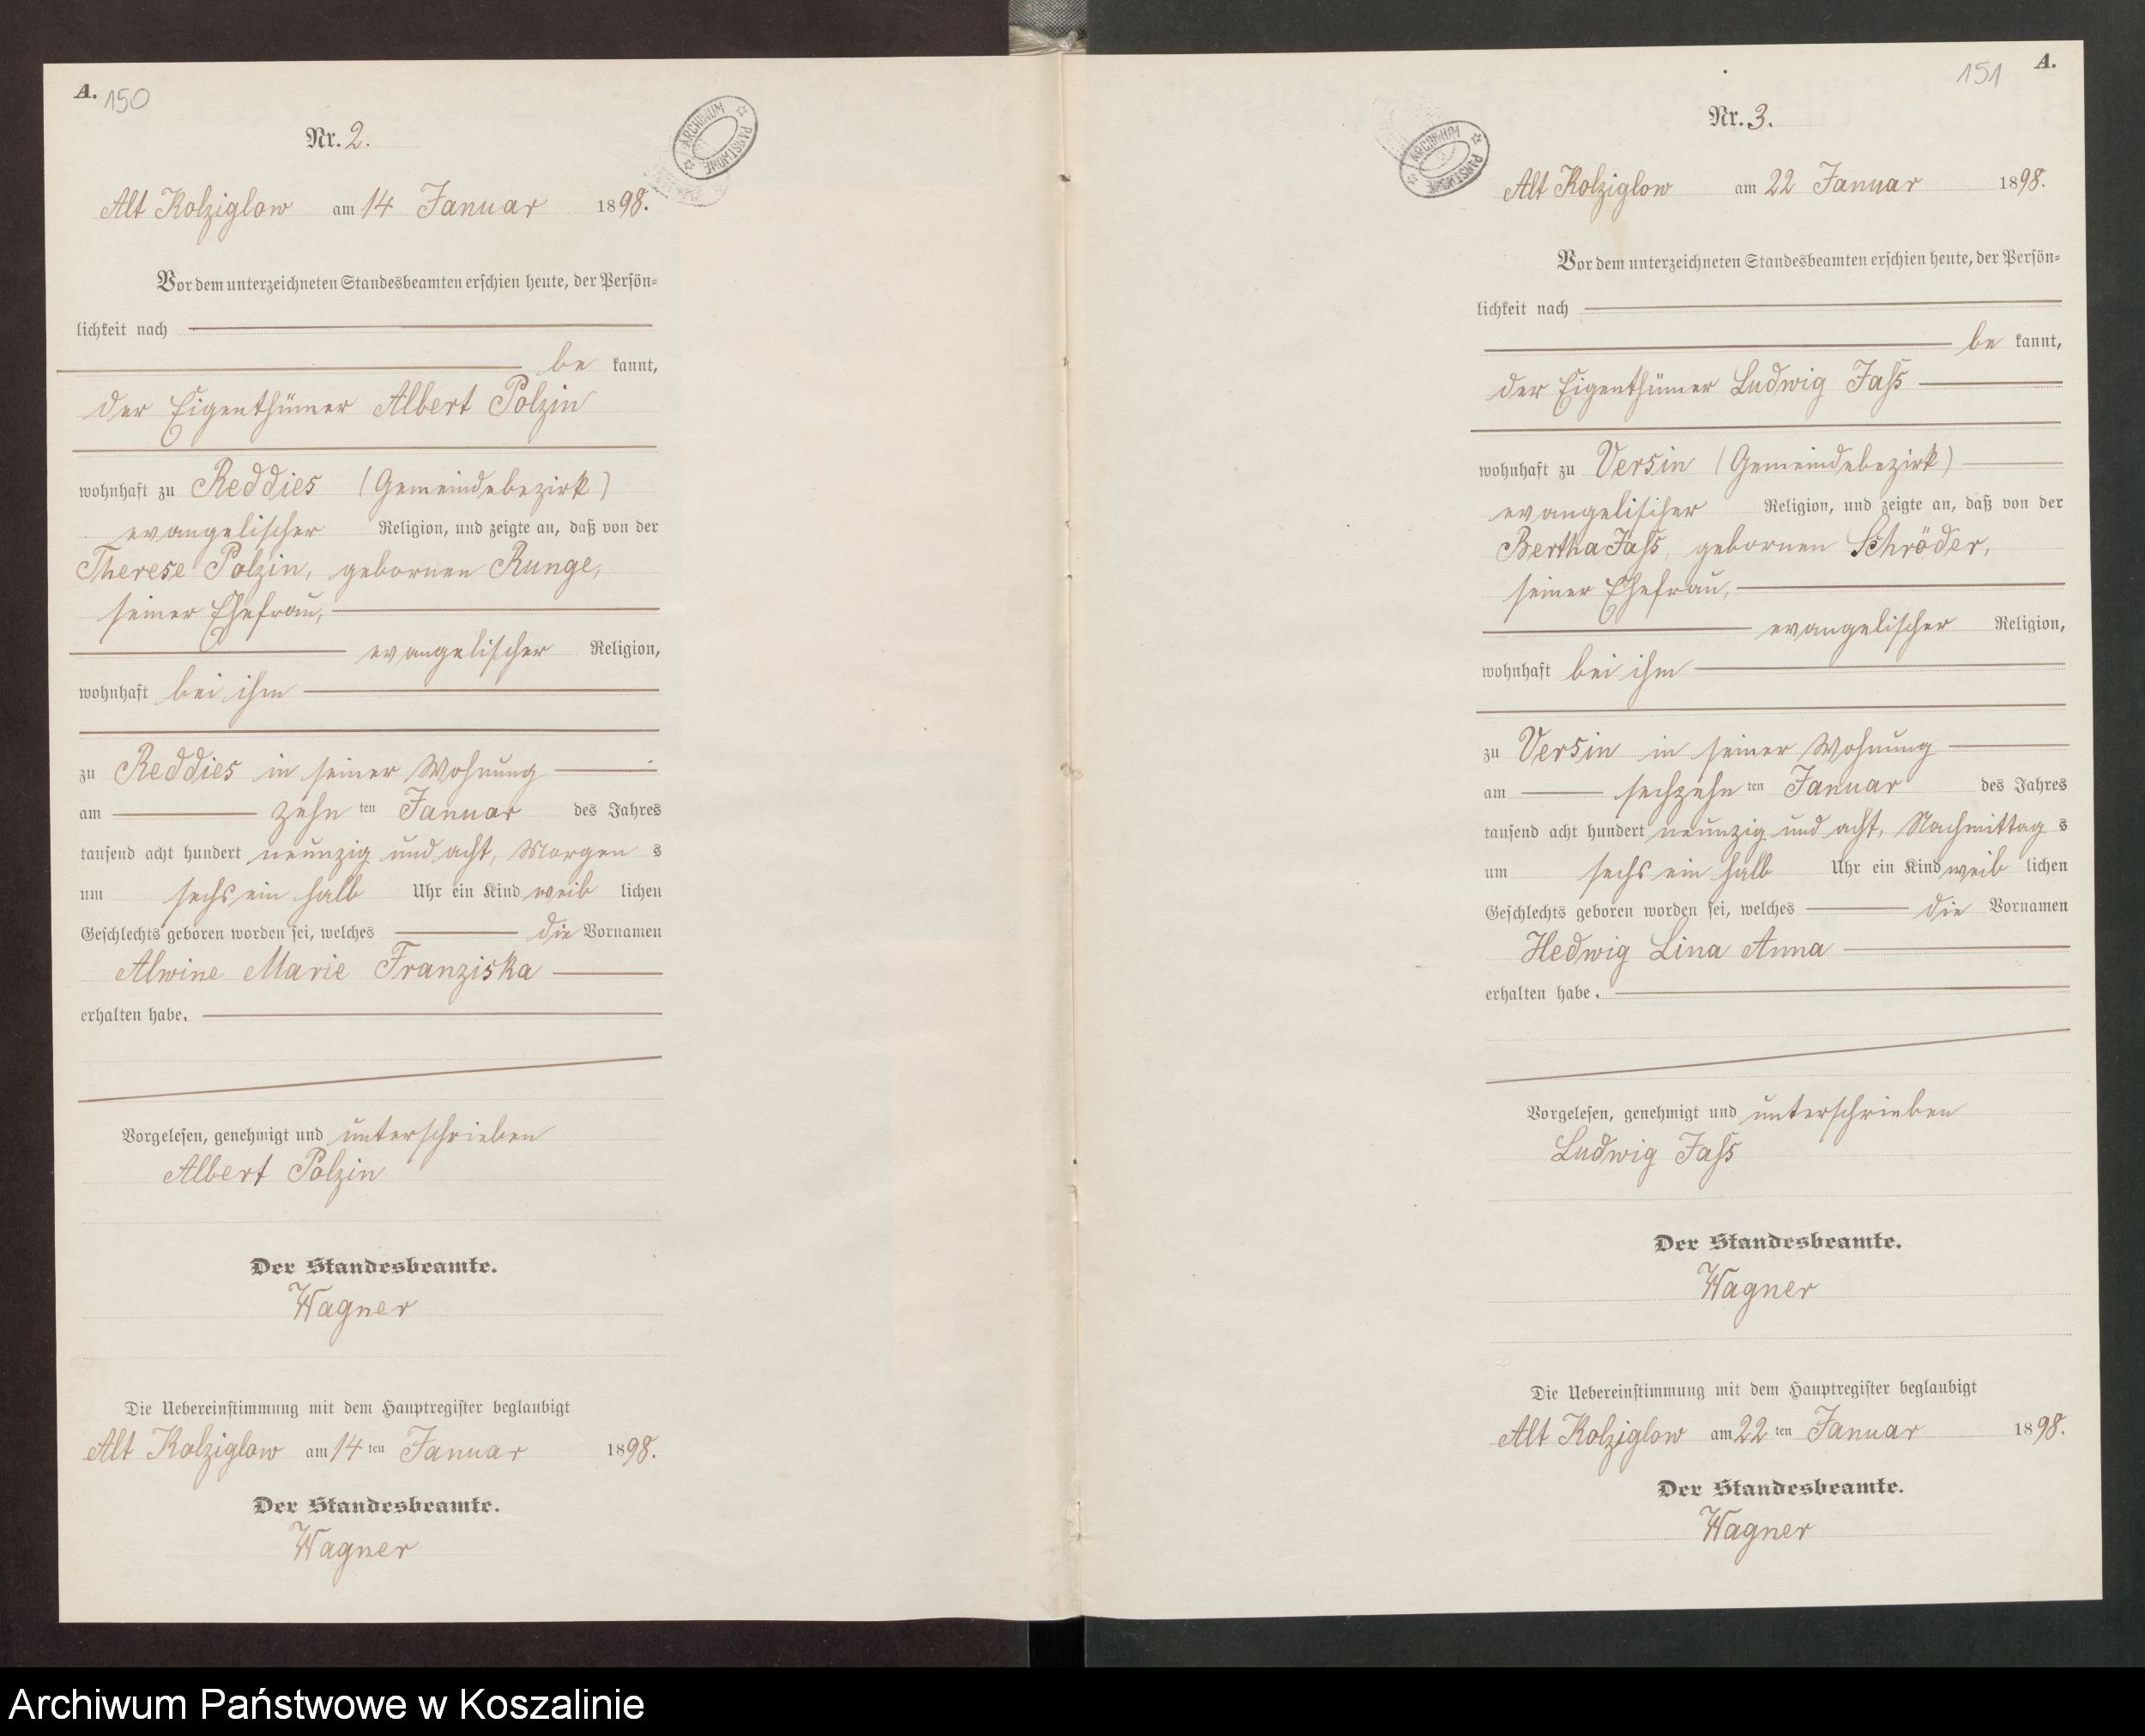 A. 150
Nr. 2.
ARCHIWUM PAŃSTWOWE
Alt Kolziglow am 14 Januar 1898.
Vor dem unterzeichneten Standesbeamten erschien heute, der Persön-
lichkeit nach
be kannt,
der Eigenthümer Albert Polzin
wohnhaft zu Reddies (Gemeindebezirk)
evangelischer Religion, und zeigte an, daß von der
Therese Polzin, gebornen Runge,
seiner Ehefrau,
evangelischer Religion,
wohnhaft bei ihm
zu Reddies in seiner Wohnung
am zehn ten Januar des Jahres
tausend acht hundert neunzig und acht, Morgen s
um sechs ein halb Uhr ein Kind weib lichen
Geschlechts geboren worden sei, welches die Vornamen
Alwine Marie Franziska
erhalten habe.
Vorgelesen, genehmigt und unterschrieben
Albert Polzin
Der Standesbeamte.
Wagner
Die Uebereinstimmung mit dem Hauptregister beglaubigt
Alt Kolziglow am 14 ten Januar 1898.
Der Standesbeamte.
Wagner
151 A.
Nr. 3.
ARCHIWUM PAŃSTWOWE
Alt Kolziglow am 22 Januar 1898.
Vor dem unterzeichneten Standesbeamten erschien heute, der Persön-
lichkeit nach
be kannt,
der Eigenthümer Ludwig Jaſs
wohnhaft zu Versin (Gemeindebezirk)
evangelischer Religion, und zeigte an, daß von der
Bertha Jaſs, gebornen Schröder,
seiner Ehefrau,
evangelischer Religion,
wohnhaft bei ihm
zu Versin in seiner Wohnung
am sechzehn ten Januar des Jahres
tausend acht hundert neunzig und acht, Nachmittag s
um sechs ein halb Uhr ein Kind weib lichen
Geschlechts geboren worden sei, welches die Vornamen
Hedwig Lina Anna
erhalten habe.
Vorgelesen, genehmigt und unterschrieben
Ludwig Jaſs
Der Standesbeamte.
Wagner
Die Uebereinstimmung mit dem Hauptregister beglaubigt
Alt Kolziglow am 22 ten Januar 1898.
Der Standesbeamte.
Wagner
Archiwum Państwowe w Koszalinie